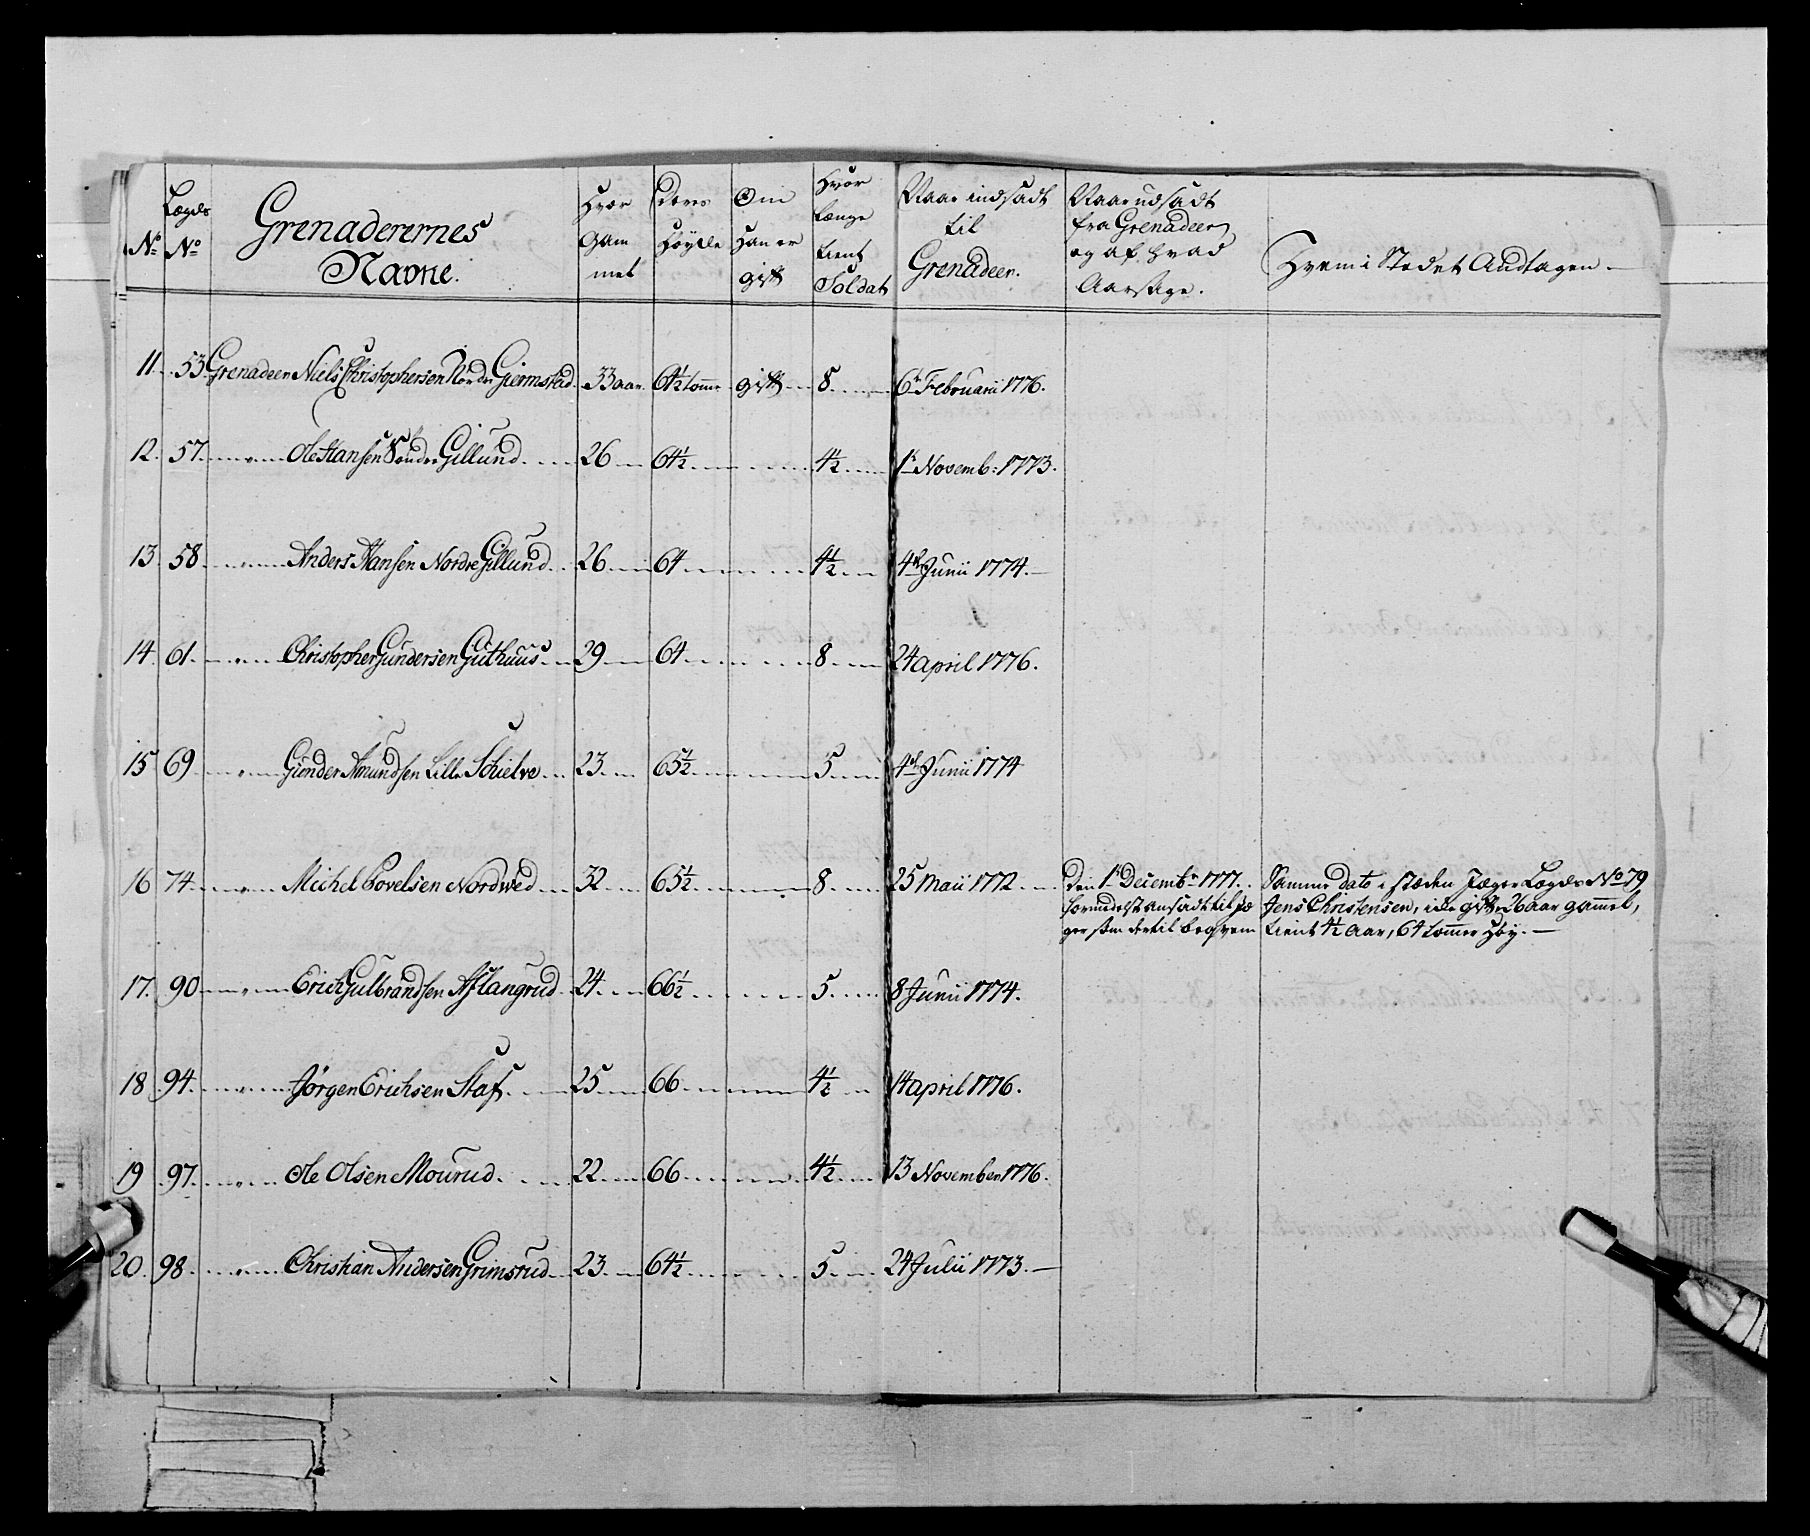 N° Lægds N° Grenaderernes Navne. Hvor Gam mel Deres Høyde Om Han er gift Hvor længe tient Soldat Naar indsadt til Grenadeer. Naar udsadt fra Grenadeer og af hvad Aarsage. Hvem i Stedet Andtagen.
11. 53 Grenadeer Niels Christophersen Nordre Giermstad 33 aar 64½ tomr gift 8 6te Februarii 1776.
12. 57. " Ole Hansen Søndre Gillund 26 64½ 4½ 1te Novemb: 1773.
13 58 " Anders Hansen Nordre Gillund 26 64 4½ 4de Junii 1774.
14. 61. " Christopher Gundersen Guthuus 29 64 8 24 april 1776.
15 69 " Gunder Amundsen Lille Schielve 23 65½ 5 4de Junii 1774
16 74 " Michel Povelsen Nordwed 32 65½ 8 25 Maii 1772 Den 1te Decembr 1777. Samme dato i stæden Jæger Lægds No 79
formedelst ansadt til Jæ Jens Christensen, icke gift, 26 aar gammel,
ger som dertil beqvem tient 4½ aar, 64 tommer høy.
17. 90 " Erich Gulbrandsen Aslangrud 24 66½ 5 8 Junii 1774.
18 94. " Jørgen Erichsen Staf 25 66 4½ 14 april 1776.
19 97. " Ole Olsen Mourud 22 66 4½ 13 November 1776.
20 98 " Christian Andersen Grimsrud 23 64½ 5 24 Julii 1773.